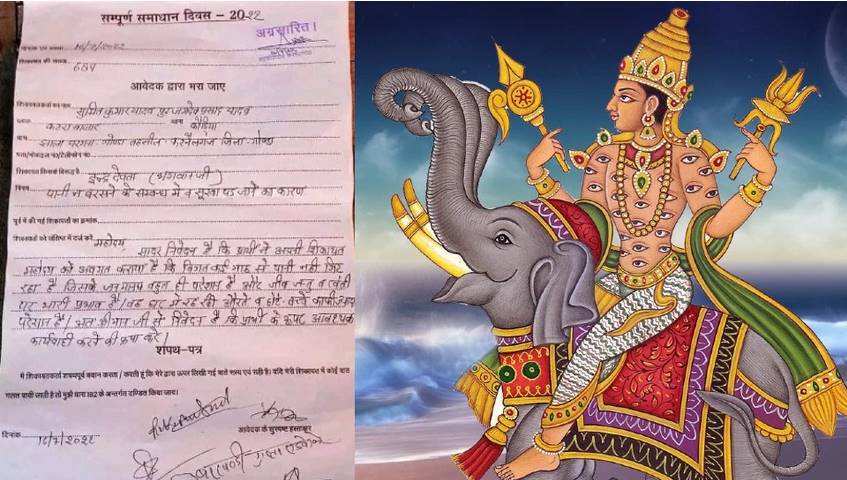 सम्पूर्ण समाधान दिवस – 2022
अग्रसारित।
16/7/2022
684
आवेदक द्वारा भरा जाए
शिकायतकर्ता का नाम सुमित कुमार यादव पुत्र जगदेव प्रसाद यादव
कटरा बाजार थाना कौडिया
झाला परगना गोण्डा तहसील करनैलगंज जिला-गोण्डा
शिकायत किसके विरुद्ध है इन्द्र देवता (भगवान जी)
विषय पानी न बरसने के सम्बन्ध में व सूखा पड़ जाने का कारण
पूर्व में की गई शिकायतों का क्रमांक
शिकायतों को संक्षिप्त में दर्ज करें महोदय,
सादर निवेदन है कि प्रार्थी ने अपनी शिकायत
महोदय को अवगत कराया है कि विगत कई माह से पानी नहीं गिर
रहा है जिसके जनमानस बहुत ही परेशान है और जीव जन्तु व खेती
पर भारी प्रभाव है। घर में रह रही औरते व छोटे बच्चे काफी ज्यादा
परेशान है। अतः श्रीमान जी से निवेदन है कि प्रार्थी के ऊपर आवश्यक
कार्यवाही करने की कृपा करें।
शपथ-पत्र
में शिकायतकर्ता शपथपूर्वक बयान करता / करती हूं कि मेरे द्वारा ऊपर लिखी गई बातें सत्य एवं सही है। यदि मेरी शिकायत में कोई बात
गलत पायी जाती है तो मुझे धारा 182 के अन्तर्गत दण्डित किया जाय।
आवेदक के सुस्पष्ट हस्ताक्षर
दिनांक 16/7/2022